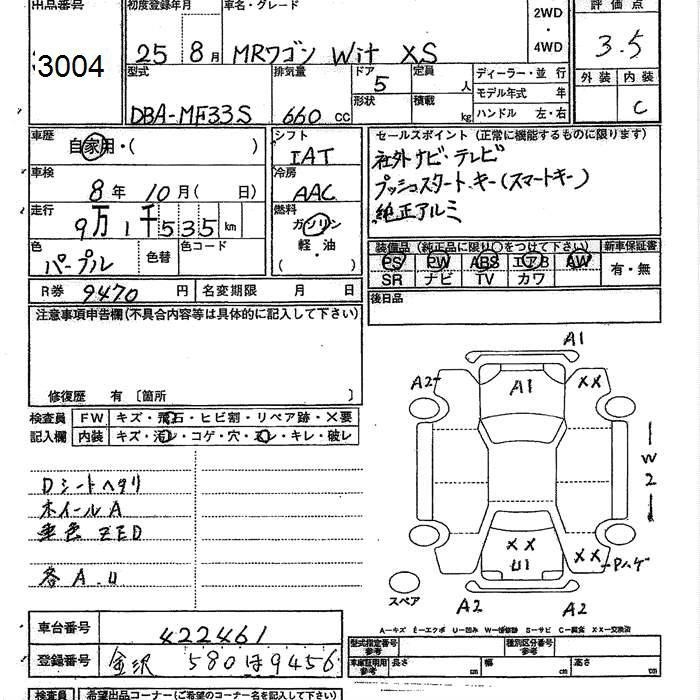 出品番号 初度登録年月 車名・グレード 評価点
3004 25 8月 MRワゴン Wit XS 2WD・4WD 3.5
型式 排気量 ドア 定員 ディーラー・並行 外装 内装
5 人 モデル年式 年
形状 積載
DBA-MF33S 660cc kg ハンドル 左・右 C
車歴 自家用・( ) シフト セールスポイント (正常に機能するものに限ります)
IAT 社外ナビ・テレビ
車検 冷房 プッシュスタート.キー(スマートキー)
8年10月( 日) AAC 純正アルミ
走行 燃料
9万1千535km ガソリン
色 色替 色コード 軽・油 装備品(純正品に限り○をつけて下さい) 新車保証書
パープル ( ) PS PW ABS エアB AW 有・無
SR ナビ TV カワ
R券 9470円 名変期限 月 日 後日品
注意事項申告欄(不具合内容等は具体的に記入して下さい)
修復歴 有〔箇所 〕
検査員 FW キズ・飛石・ヒビ割・リペア跡・×要
記入欄 内装 キズ・汚レ・コゲ・穴・スレ・キレ・破レ
Dシートヘタリ
ホイールA
車色 ZED
各A.U
A1
A2 A1 XX
W2
XX XX Pハゲ
U1
スペア A2 A2
A―キズ E―エクボ U―凹み W―補修跡 S―サビ C―腐食 XX―交換済
車台番号 422461 型式指定番号 参考 種別区分番号 参考
登録番号 金沢 580 ほ 9456 車庫証明用 参考 長さ cm 幅 cm 高さ cm
検査員 希望出品コーナー(ご希望のコーナー名を記入